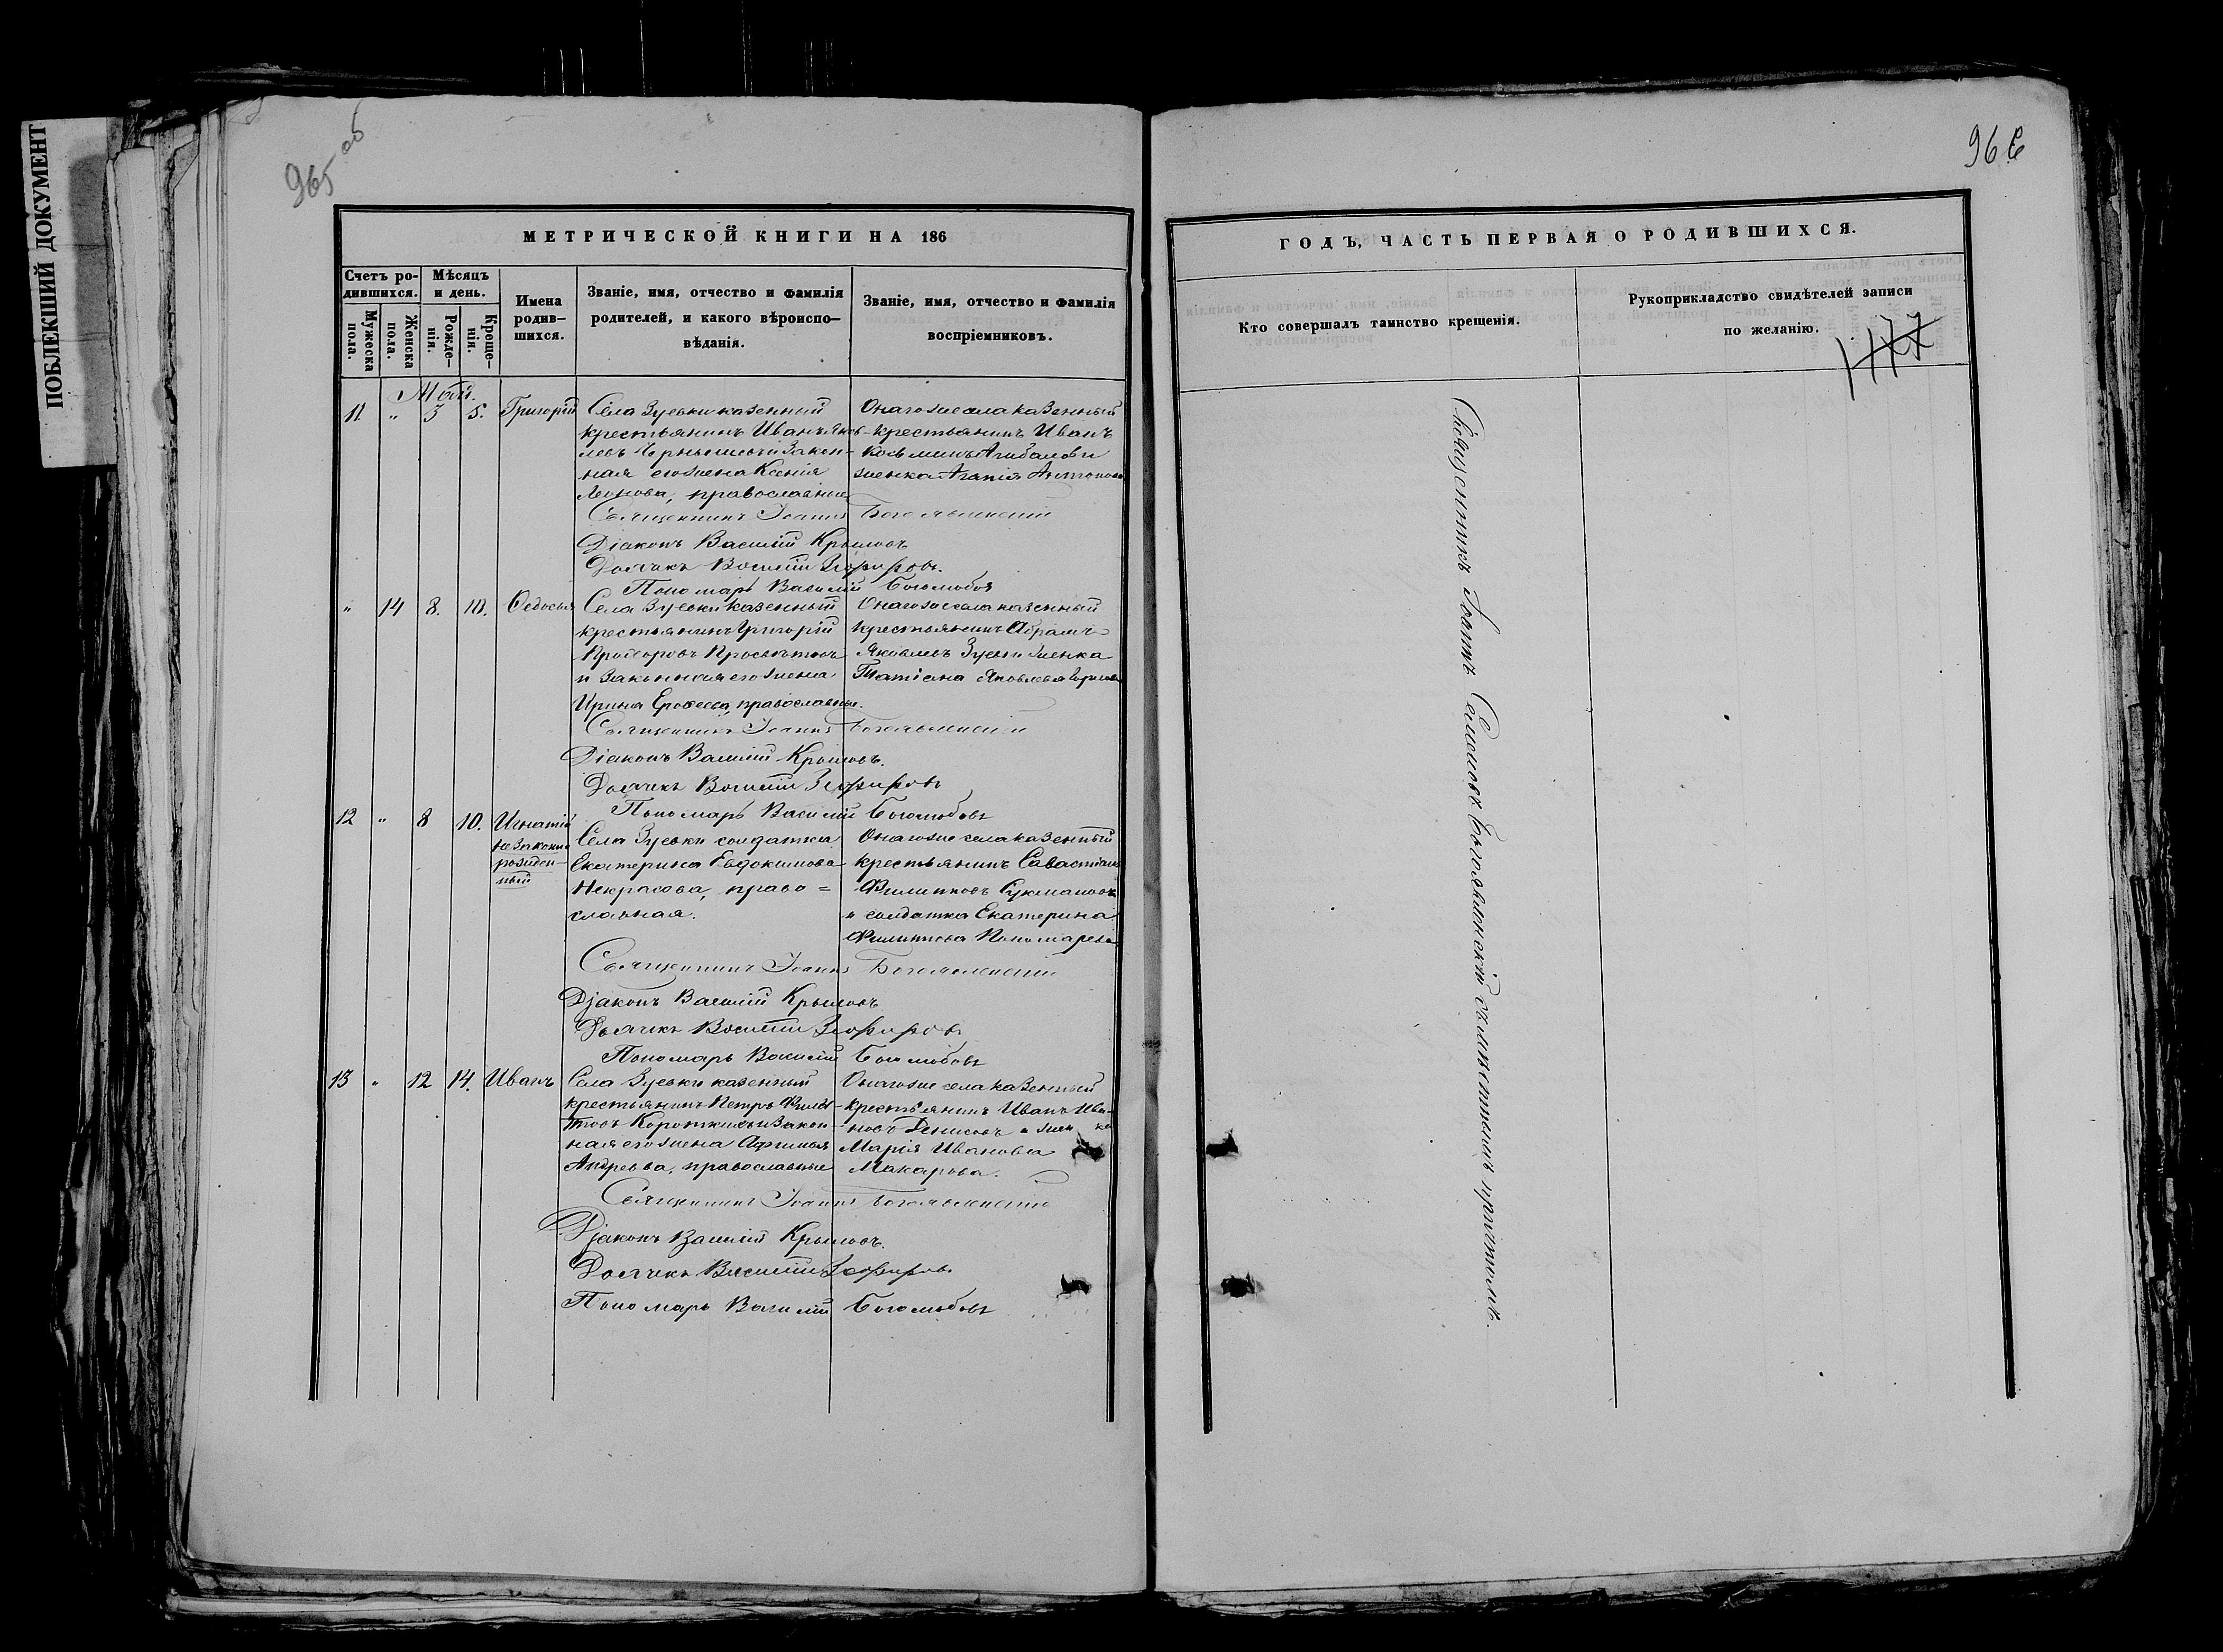 ПОБЛЕКШИЙ ДОКУМЕНТ
965 об
МЕТРИЧЕСКОЙ КНИГИ НА 186
Счетъ ро-
дившихся.
Мѣсяцъ
и день.
Мужеска
пола.
Женска
пола.
Рожде-
нія.
Креще-
нія.
Имена
родив-
шихся.
Званіе, имя, отчество и фамилія
родителей, и какого вѣроиспо-
вѣданія.
Званіе, имя, отчество и фамилія
воспріемниковъ.
Май.
11 " 3 5. Григорій
Села Зуевки казенный
крестьянинъ Иванъ Яков-
левъ и закон-
ная его жена Ксенія
православные
Онаго же села казенный
крестьянинъ Иванъ
Козьминъ
женка Агапія Антонова
Священникъ Іоаннъ Богоявленскій
Діаконъ Василій Крыловъ
Дьячекъ Василій Зефировъ.
Пономарь Василій Боголюбовъ
" 14 8. 10. Федосья
Села Зуевки казенный
крестьянинъ Григорій
Прохоровъ
и законная его жена
Ирина Ерофеева, православные.
Онаго же села казенный
крестьянинъ Абрамъ
Яковлевъ Зуевъ и женка
Татіана Яковлева
Священникъ Іоаннъ Богоявленскій
Діаконъ Василій Крыловъ.
Дьячекъ Василій Зефировъ
Пономарь Василій Боголюбовъ
12 " 8 10. Игнатій
незаконно
рожден-
ный
Села Зуевки солдатка
Екатерина Евдокимова
Некрасова, право=
славная.
Онаго же села казенный
крестьянинъ Савастіанъ
Филиповъ Сукмановъ
и солдатка Екатерина
Филипова Пономарева
Священникъ Іоаннъ Богоявленскій
Діаконъ Василій Крыловъ
Дьячекъ Василій Зефировъ
Пономарь Василій Боголюбовъ
13 " 12 14. Иванъ
Села Зуевки казенный
крестьянинъ Петръ Филип-
повъ Коротких и закон-
ная его жена Афимья
Андреева, православные
Онаго же села казенный
крестьянинъ Иванъ Ива-
новъ Денисовъ и женка
Марія Иванова
Макарова.
Священникъ Іоаннъ Богоявленскій
Діаконъ Василій Крыловъ.
Дьячекъ Василій Зефировъ
Пономарь Василій Боголюбовъ
966
ГОДЪ, ЧАСТЬ ПЕРВАЯ О РОДИВШИХСЯ.
Кто совершалъ таинство крещенія.
Рукоприкладство свидѣтелей записи
по желанію.
Священникъ Іоаннъ Богоявленскій съ причтомъ.